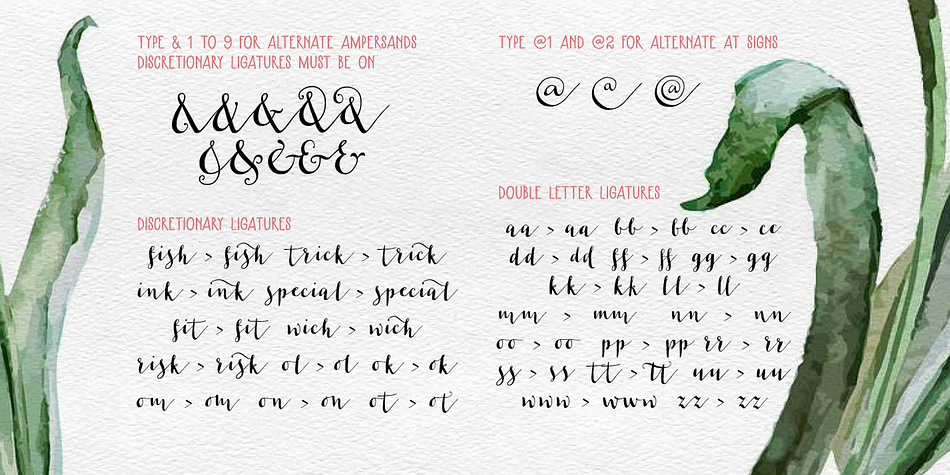 TYPE & 1 TO 9 FOR ALTERNATE AMPERSANDS
DISCRETIONARY LIGATURES MUST BE ON
& & & & &
& & & & &
DISCRETIONARY LIGATURES
fish > fish trick > trick
ink > ink special > special
fit > fit wich > wich
risk > risk ol > ol ok > ok
om > om on > on ot > ot
TYPE @1 AND @2 FOR ALTERNATE AT SIGNS
@ @ @
DOUBLE LETTER LIGATURES
aa > aa bb > bb cc > cc
dd > dd ff > ff gg > gg
kk > kk ll > ll
mm > mm nn > nn
oo > oo pp > pp rr > rr
ss > ss tt > tt uu > uu
www > www zz > zz